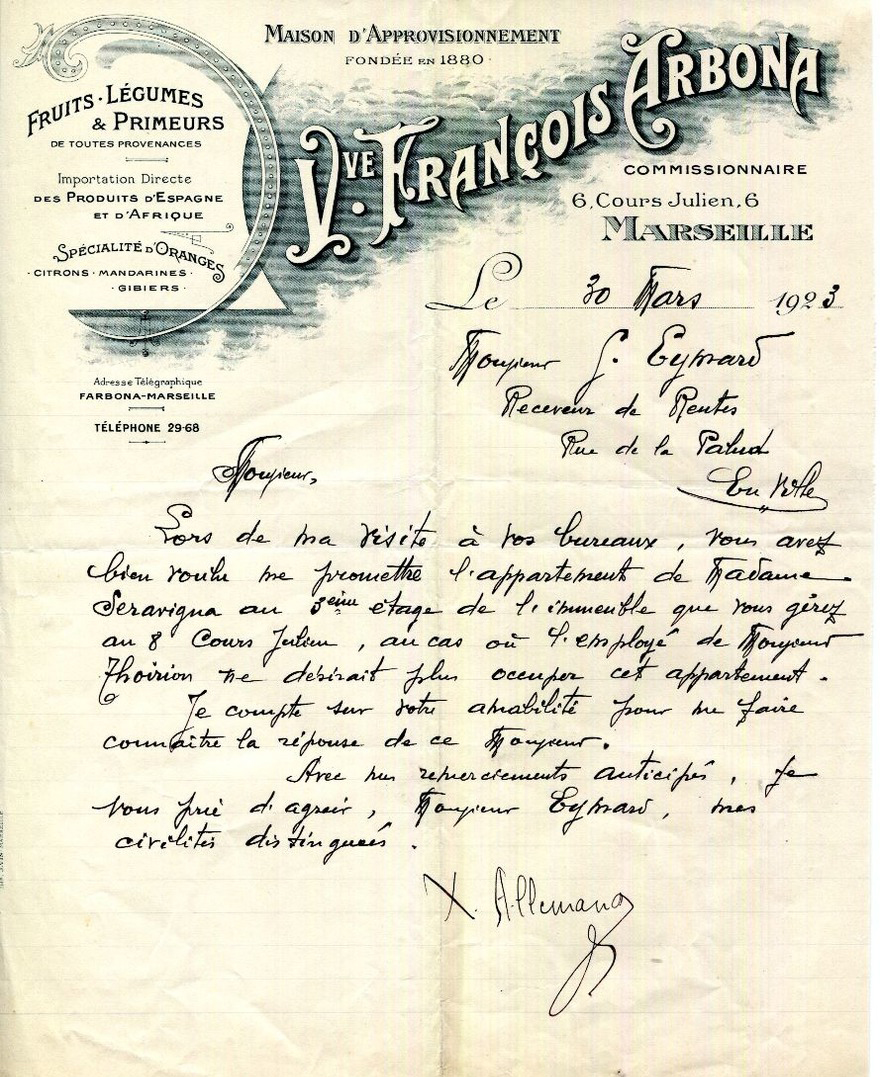 MAISON D'APPROVISIONNEMENT
FONDÉE EN 1880
FRUITS · LÉGUMES
& PRIMEURS
DE TOUTES PROVENANCES
Importation Directe
DES PRODUITS D'ESPAGNE
ET D'AFRIQUE
SPÉCIALITÉ D'ORANGES
· CITRONS · MANDARINES ·
· GIBIERS ·
VVE FRANÇOIS ARBONA
COMMISSIONNAIRE
6, Cours Julien, 6
MARSEILLE
Adresse Télégraphique
FARBONA-MARSEILLE
TÉLÉPHONE 29-68
Le 30 Mars 1923
Monsieur G. Eymard
Receveur de Rentes
Rue de la Palud
En Ville
Monsieur,
Lors de ma visite à vos bureaux, vous avez
bien voulu me promettre l'appartement de Madame
Seravigna au 3eme étage de l'immeuble que vous gérez
au 8 Cours Julien, au cas où l'employé de Monsieur
Thoirion ne désirait plus occuper cet appartement.
Je compte sur votre amabilité pour me faire
connaitre la réponse de ce Monsieur.
Avec mes remerciements anticipés, Je
vous prie d'agreir, Monsieur Eymard, mes
civilités distinguées.
X. Allemand